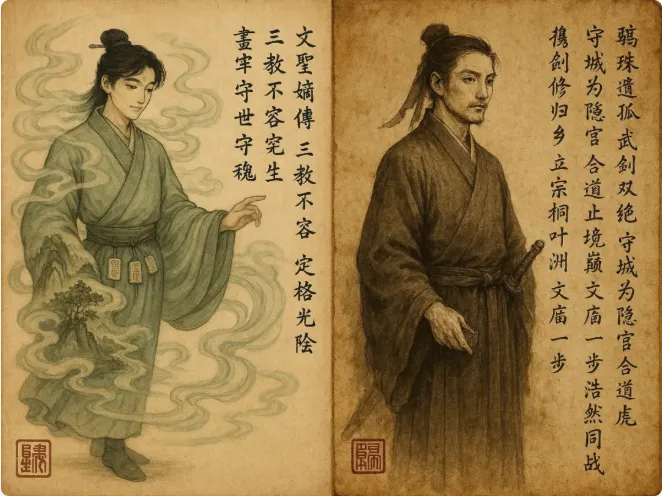 文聖嫡傳 三教不容 定格光陰
三教不容完生
畫牢守世守魂
骊珠遺孤武剑双绝 守城为隐官合道虎
守城为隐官 合道止境巅 文庙一步浩然同战
携劍修归乡 立宗桐叶洲 文庙一步